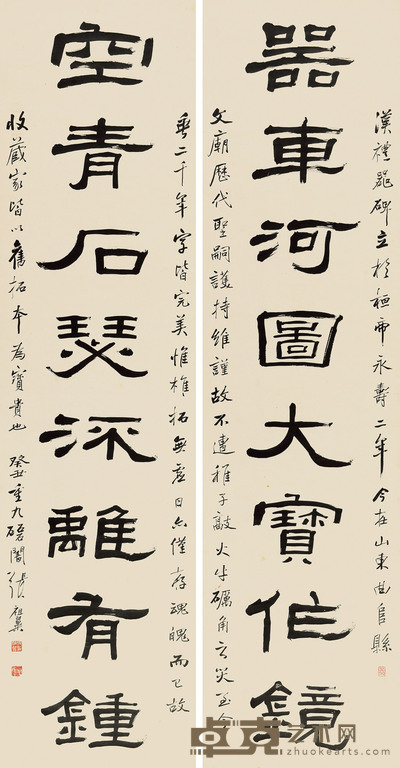 漢禮器碑立於桓帝永壽二年今在山東曲阜縣
器車河圖大寶作鏡
文廟歷代聖嗣護持維謹故不遭稚子敲火牛礪角之災至今
垂二千年字皆完美惟椎拓無虛日亦僅存魂魄而已故
空青石瑟深離有鍾
收藏家皆以舊拓本為寶貴也 癸丑重九磊闇張祖翼
卓克艺术网
www.zhuokearts.com